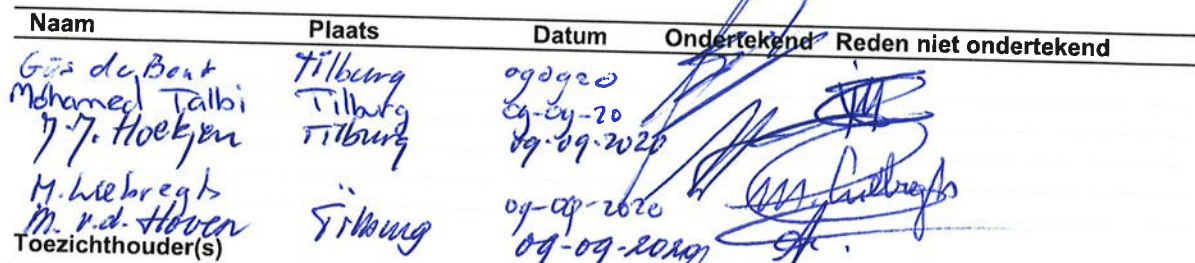 Naam Plaats Datum Ondertekend Reden niet ondertekend
Gijs de Bont Tilburg 090920
Mohamed Talbi Tilburg 09-09-20
J.J. Hoekjen Tilburg 09-09-2020
M. Liebregts " 09-09-2020 M. Liebregts
M. v.d. Hoven Tilburg 09-09-2020
Toezichthouder(s)